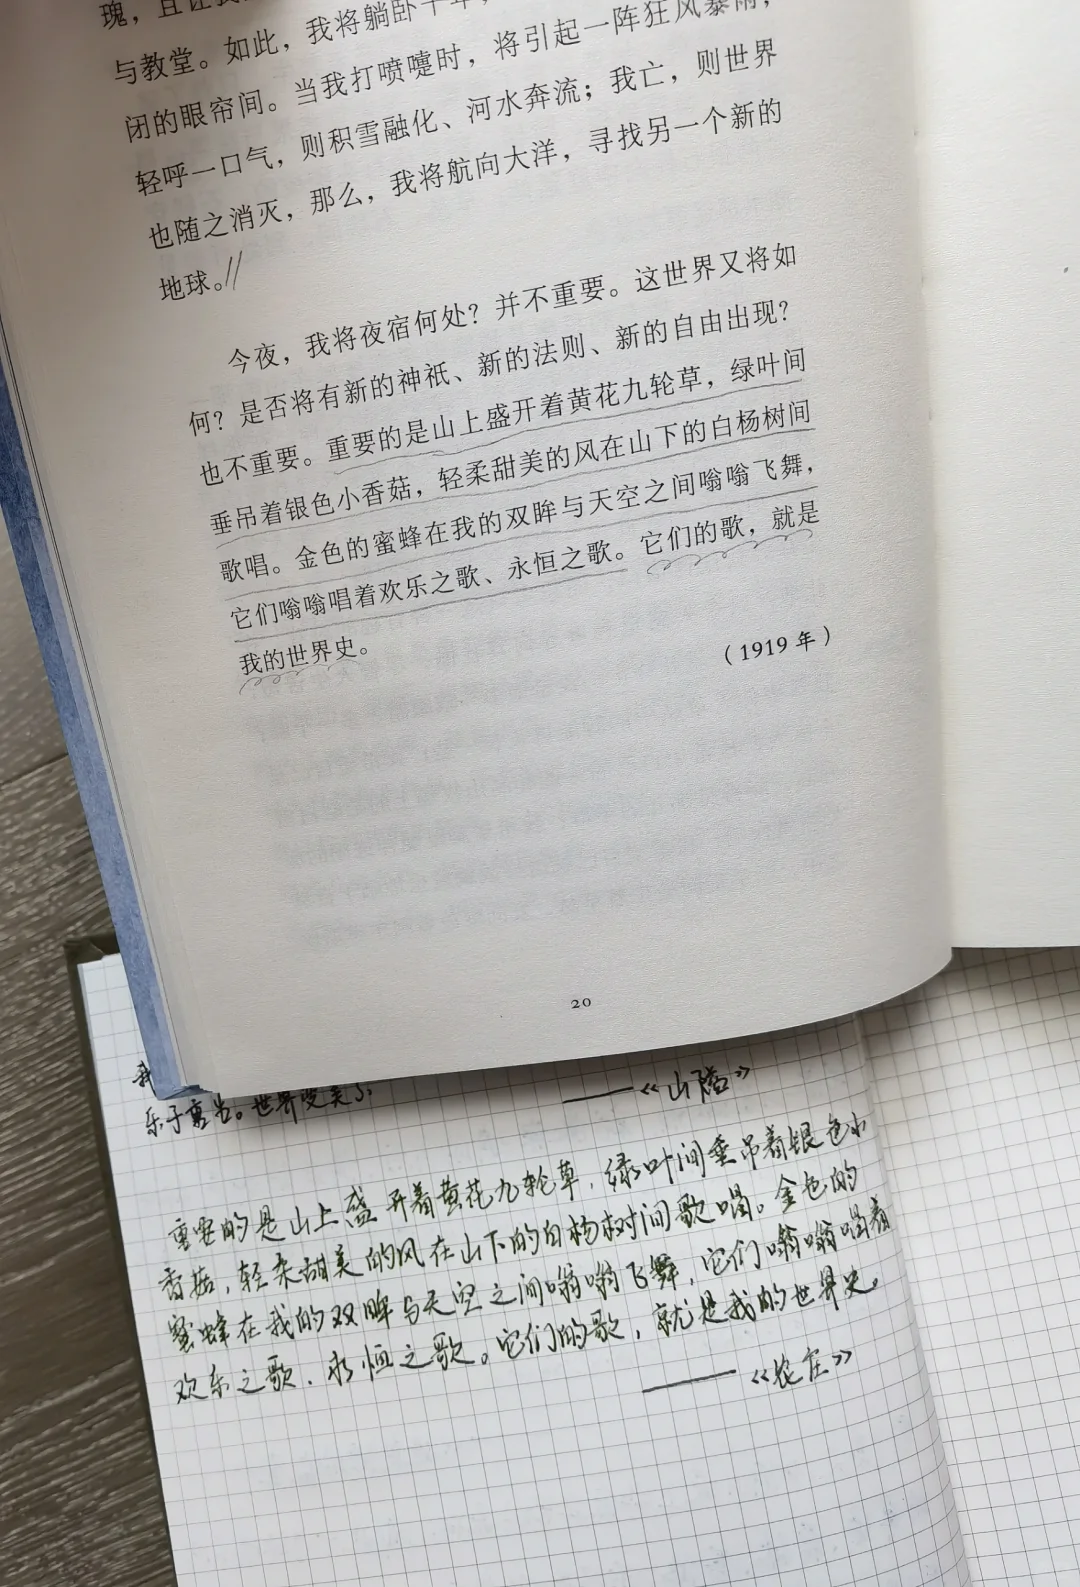 瑰，且让我
与教堂。如此，我将躺卧千年，
闭的眼帘间。当我打喷嚏时，将引起一阵狂风暴雨，
轻呼一口气，则积雪融化、河水奔流；我亡，则世界
也随之消灭，那么，我将航向大洋，寻找另一个新的
地球。
今夜，我将夜宿何处？并不重要。这世界又将如
何？是否将有新的神祇、新的法则、新的自由出现？
也不重要。重要的是山上盛开着黄花九轮草，绿叶间
垂吊着银色小香菇，轻柔甜美的风在山下的白杨树间
歌唱。金色的蜜蜂在我的双眸与天空之间嗡嗡飞舞，
它们嗡嗡唱着欢乐之歌、永恒之歌。它们的歌，就是
我的世界史。
（1919 年）
20
我
乐于离出。世界变美了.
——《山隘》
重要的是山上盛开着黄花九轮草，绿叶间垂吊着银色小
香菇，轻柔甜美的风在山下的白杨树间歌唱。金色的
蜜蜂在我的双眸与天空之间嗡嗡飞舞，它们嗡嗡唱着
欢乐之歌、永恒之歌。它们的歌，就是我的世界史。
——《农庄》